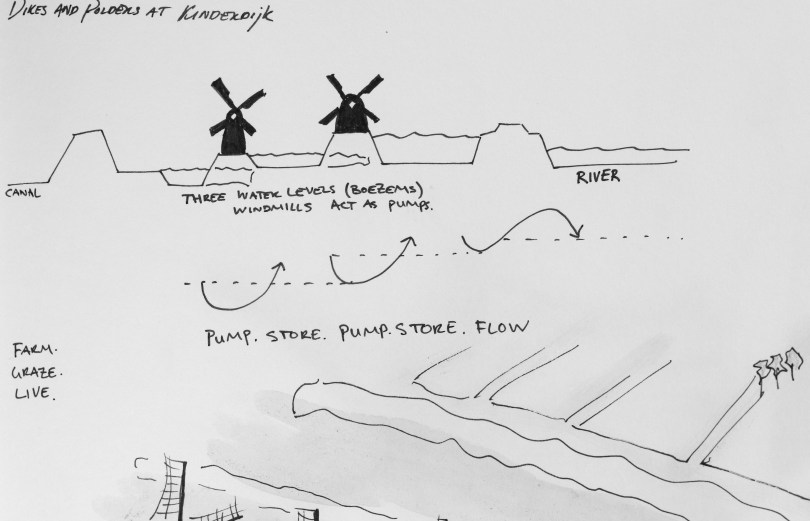 DIKES AND POLDERS AT KINDERDIJK
CANAL
THREE WATER LEVELS (BOEZEMS)
WINDMILLS ACT AS PUMPS.
RIVER
PUMP. STORE. PUMP. STORE. FLOW
FARM.
GRAZE.
LIVE.